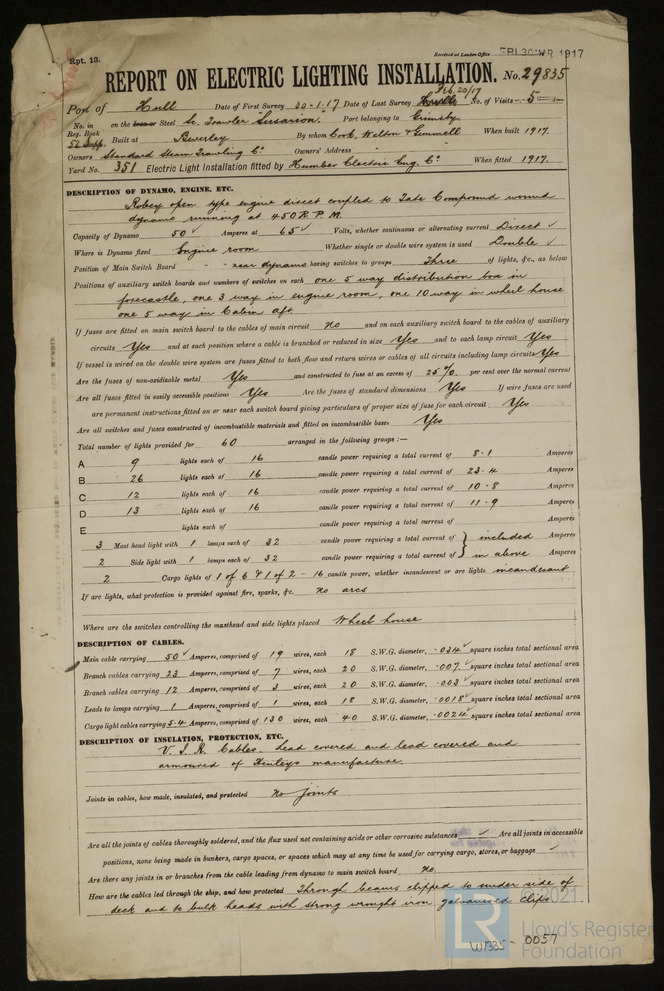 Rpt. 13.
Received at London Office FRI 30 MAR 1917
REPORT ON ELECTRIC LIGHTING INSTALLATION. No. 29835
Port of Hull Date of First Survey 20-1-17 Date of Last Survey Feb. 20/17 No. of Visits 5
No. in Reg. Book on the Iron or Steel Sc. Trawler "Susarion" Port belonging to Grimsby
56 Supp. Built at Beverley By whom Cook, Welton & Gemmell When built 1917.
Owners Standard Steam Trawling Co Owners' Address
Yard No. 351 Electric Light Installation fitted by Humber Electric Eng. Co When fitted 1917.
DESCRIPTION OF DYNAMO, ENGINE, ETC.
Robey open type engine direct coupled to Tate Compound wound
dynamo running at 450 R.P.M.
Capacity of Dynamo 50 ✓ Amperes at 65 ✓ Volts, whether continuous or alternating current Direct ✓
Where is Dynamo fixed Engine room Whether single or double wire system is used Double ✓
Position of Main Switch Board " - near dynamo having switches to groups Three of lights, &c., as below
Positions of auxiliary switch boards and numbers of switches on each one 5 way distribution box in
forecastle, one 3 way in engine room, one 10 way in wheel house
one 5 way in Cabin aft.
If fuses are fitted on main switch board to the cables of main circuit no and on each auxiliary switch board to the cables of auxiliary
circuits Yes and at each position where a cable is branched or reduced in size Yes and to each lamp circuit Yes
If vessel is wired on the double wire system are fuses fitted to both flow and return wires or cables of all circuits including lamp circuits Yes
Are the fuses of non-oxidisable metal Yes and constructed to fuse at an excess of 25% per cent over the normal current
Are all fuses fitted in easily accessible positions Yes Are the fuses of standard dimensions Yes If wire fuses are used
are permanent instructions fitted on or near each switch board giving particulars of proper size of fuse for each circuit Yes
Are all switches and fuses constructed of incombustible materials and fitted on incombustible bases Yes
Total number of lights provided for 60 arranged in the following groups :—
A 9 lights each of 16 candle power requiring a total current of 8.1 Amperes
B 26 lights each of 16 candle power requiring a total current of 23.4 Amperes
C 12 lights each of 16 candle power requiring a total current of 10.8 Amperes
D 13 lights each of 16 candle power requiring a total current of 11.9 Amperes
E lights each of candle power requiring a total current of Amperes
3 Mast head light with 1 lamps each of 32 candle power requiring a total current of } included Amperes
2 Side light with 1 lamps each of 32 candle power requiring a total current of } in above Amperes
2 Cargo lights of 1 of 6 & 1 of 2 - 16 candle power, whether incandescent or arc lights incandescent
If arc lights, what protection is provided against fire, sparks, &c. no arcs
Where are the switches controlling the masthead and side lights placed Wheel house
DESCRIPTION OF CABLES.
Main cable carrying 50 ✓ Amperes, comprised of 19 wires, each 18 S.W.G. diameter, .034 ✓ square inches total sectional area
Branch cables carrying 23 Amperes, comprised of 7 wires, each 20 S.W.G. diameter, .007 ✓ square inches total sectional area
Branch cables carrying 12 Amperes, comprised of 3 wires, each 20 S.W.G. diameter, .003 ✓ square inches total sectional area
Leads to lamps carrying 1 Amperes, comprised of 1 wires, each 18 S.W.G. diameter, .0018 ✓ square inches total sectional area
Cargo light cables carrying 5.4 Amperes, comprised of 130 wires, each 40 S.W.G. diameter, .0024 ✓ square inches total sectional area
DESCRIPTION OF INSULATION, PROTECTION, ETC.
V.I.R. Cables - lead covered and lead covered and
armoured of Henleys manufacture.
Joints in cables, how made, insulated, and protected no joints
Are all the joints of cables thoroughly soldered, and the flux used not containing acids or other corrosive substances ✓ Are all joints in accessible
positions, none being made in bunkers, cargo spaces, or spaces which may at any time be used for carrying cargo, stores, or baggage ✓
Are there any joints in or branches from the cable leading from dynamo to main switch board no.
How are the cables led through the ship, and how protected Through beams clipped to under side of
deck and to bulk heads with strong wrought iron galvanised clips
© 2021
LR Lloyd's Register
Foundation
W985-0057